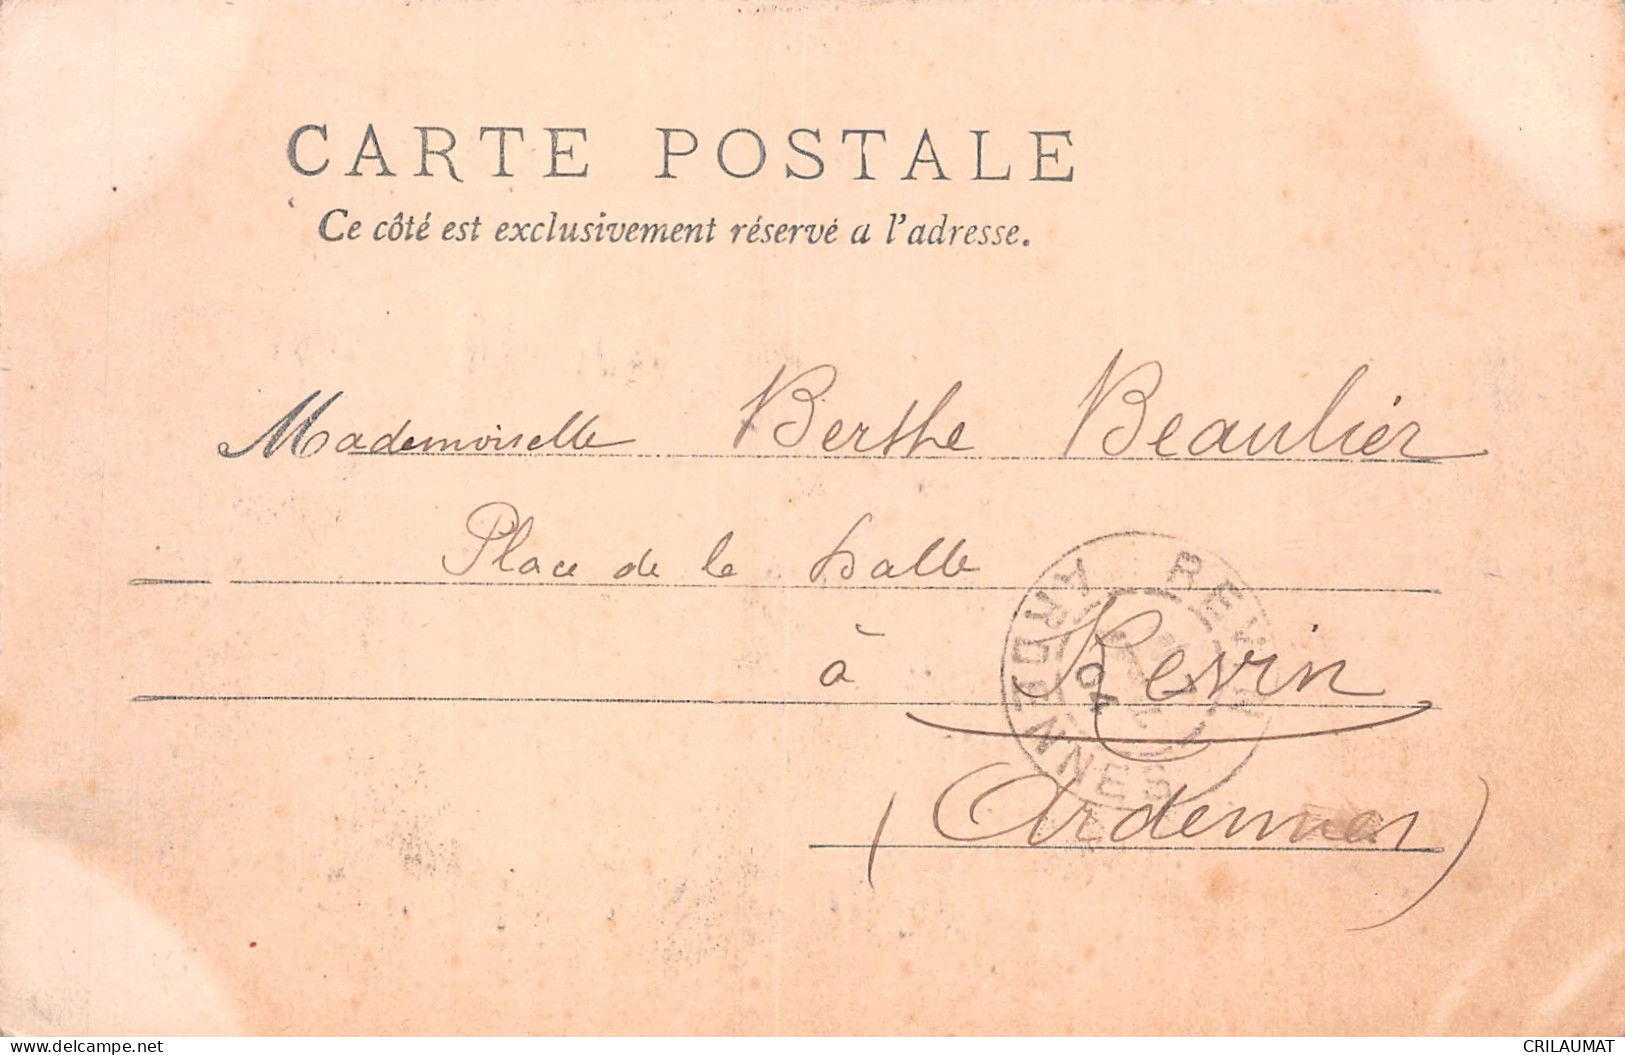 CARTE POSTALE
Ce côté est exclusivement réservé a l'adresse.
Mademoiselle Berthe Beaulier
Place de la halle
à Revin
(Ardennes)
REVIN
ARDENNES
04
delcampe.net
CRILAUMAT